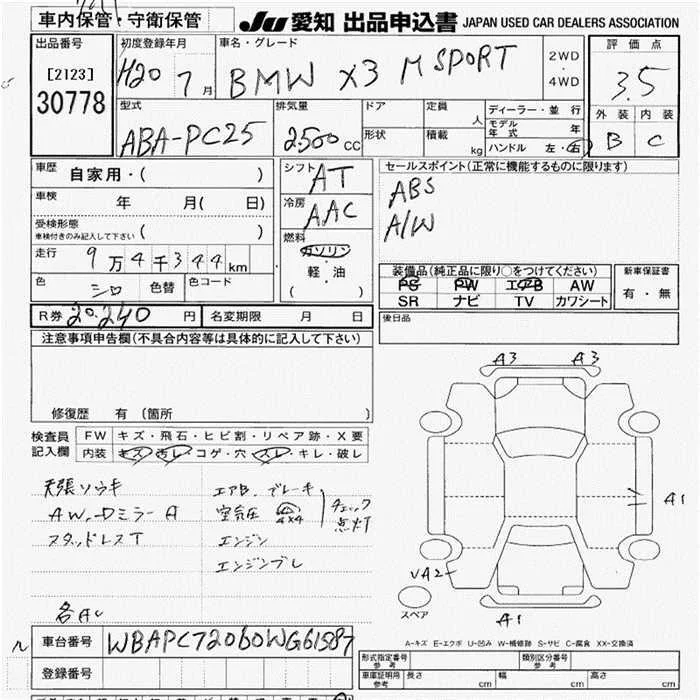 車内保管・守衛保管
Ju 愛知 出品申込書 JAPAN USED CAR DEALERS ASSOCIATION
出品番号 [2123] 30778
初度登録年月 H20 7月
車名・グレード BMW X3 M SPORT
2WD・4WD
評価点 3.5
外装 内装
B C
型式 ABA-PC25
排気量 2500cc
ドア 形状
定員 人
積載 kg
ディーラー・並行
モデル年式 年
ハンドル 左・右
車歴 自家用・( )
車検 年 月( 日)
受検形態 車検付きのみ記入して下さい ( )
走行 9万4千344km
色 シロ 色替 色コード
シフト AT
冷房 AAC
燃料 ガソリン・軽・油 ( )
セールスポイント(正常に機能するものに限ります)
ABS
A/W
装備品(純正品に限り○をつけてください)
PS PW エアB AW
SR ナビ TV カワシート
新車保証書 有・無
R券 20,240円 名変期限 月 日
後日品
注意事項申告欄(不具合内容等は具体的に記入して下さい)
修復歴 有 (箇所 )
検査員記入欄 FW キズ・飛石・ヒビ割・リペア跡・X要
内装 キズ・汚レ・コゲ・穴・スレ・キレ・破レ
天張ソウキ
AW、Dミラー A
スタッドレスT
各AU
エアB、ブレーキ
空気圧 4x4
エンジン
エンジンブレ
チェック点灯
A3 A3
A1
VA2
A1
スペア
A-キズ E-エクボ U-凹み W-補修跡 S-サビ C-腐食 XX-交換済
車台番号 WBAPC72060WG61587
登録番号
形式指定番号 参考 類別区分番号 参考
車庫証明用 参考 長さ cm 幅 cm 高さ cm